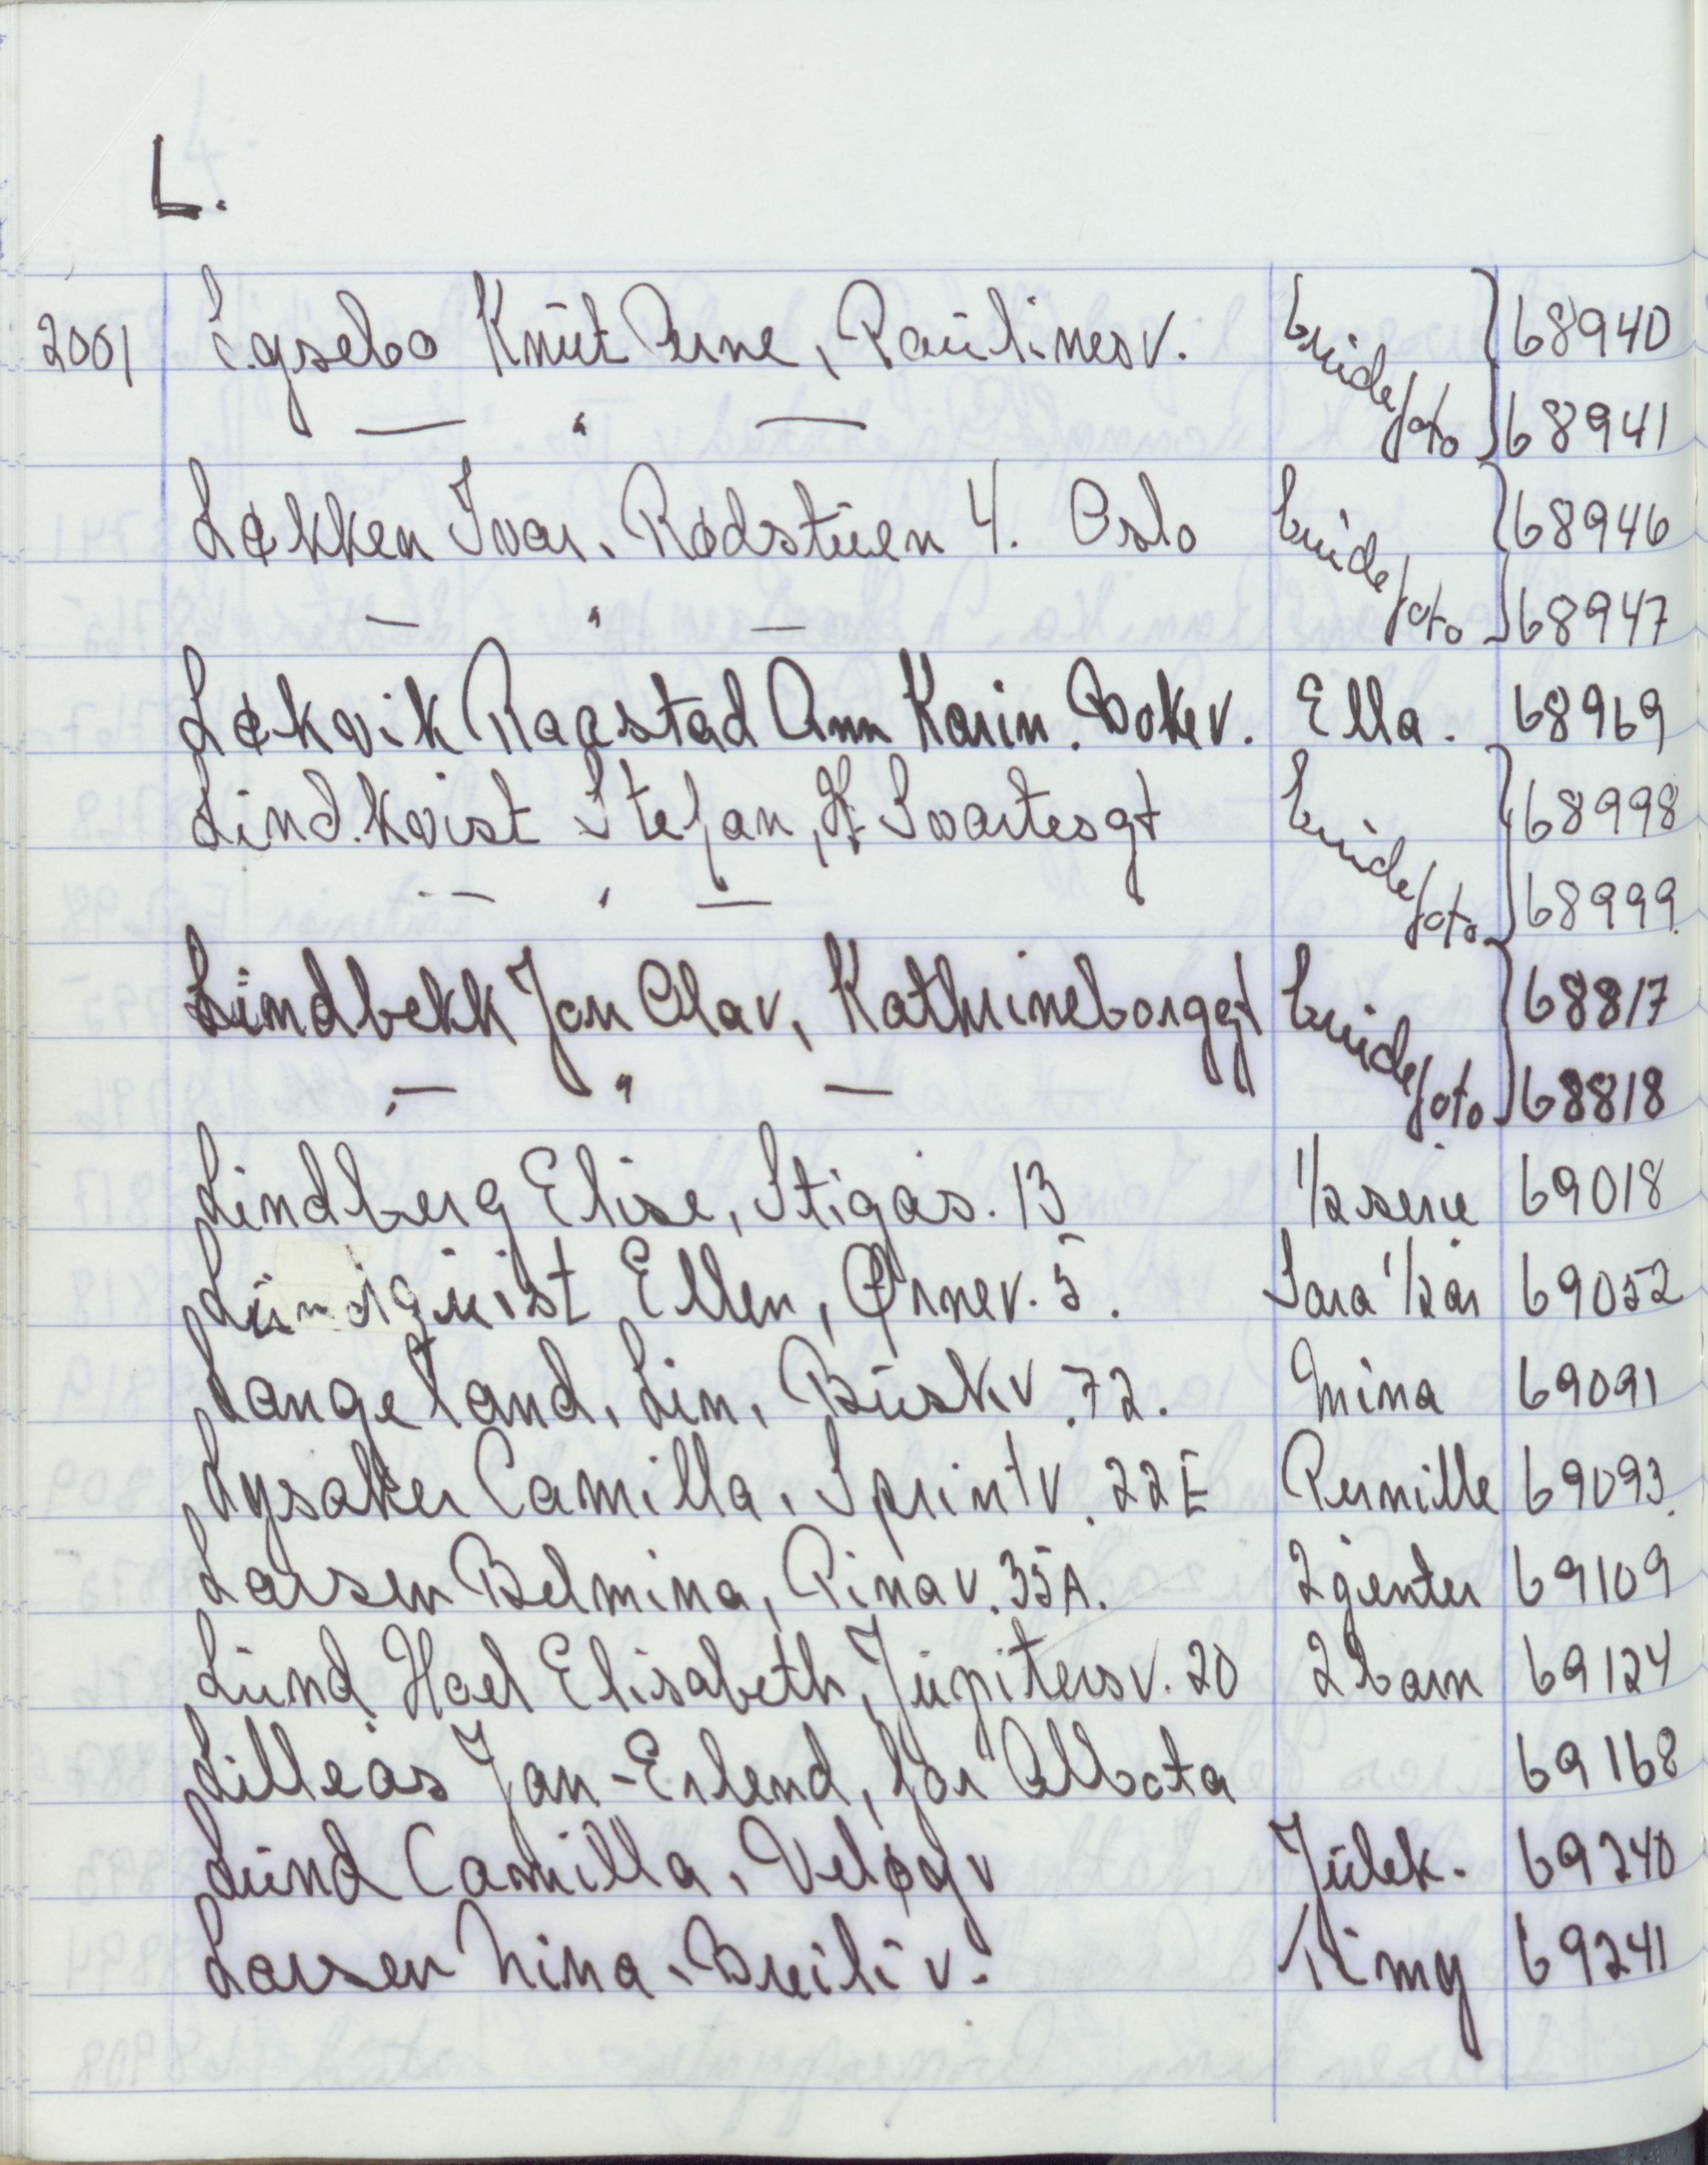 L.
2001 Lysebo Knut Arne, Paulinesv. brudefoto 68940
— " — 68941
Løkken Ivar. Rødstuen 4. Oslo brudefoto 68946
— " — 68947
Løkvik Raastad Ann Karin. Bokev. Ella. 68969
Lindkvist Stefan, H. Svartesgt brudefoto 68998
— " — 68999
Lindbekk Jon Olav, Kathrineborggt brudefoto 68817
— " — 68818
Lindberg Elise, Stigås. 13 1/2 serie 69018
Lundquist Ellen, Ørnev. 5. Sara 1/2 år 69052
Langeland, Lin, Buskv. 72. Mina 69091
Lysaker Camilla, Sprintv. 22E Pernille 69093
Larsen Belmina, Pinav. 35A. 2 jenter 69109
Lund Hoel Elisabeth, Jupitersv. 20 2 barn 69124
Lilleås Jan-Erlend, for Abbota 69168
Lund Camilla, Veløyv Julek. 69240
Larsen Nina. Breiliv. Timy 69241